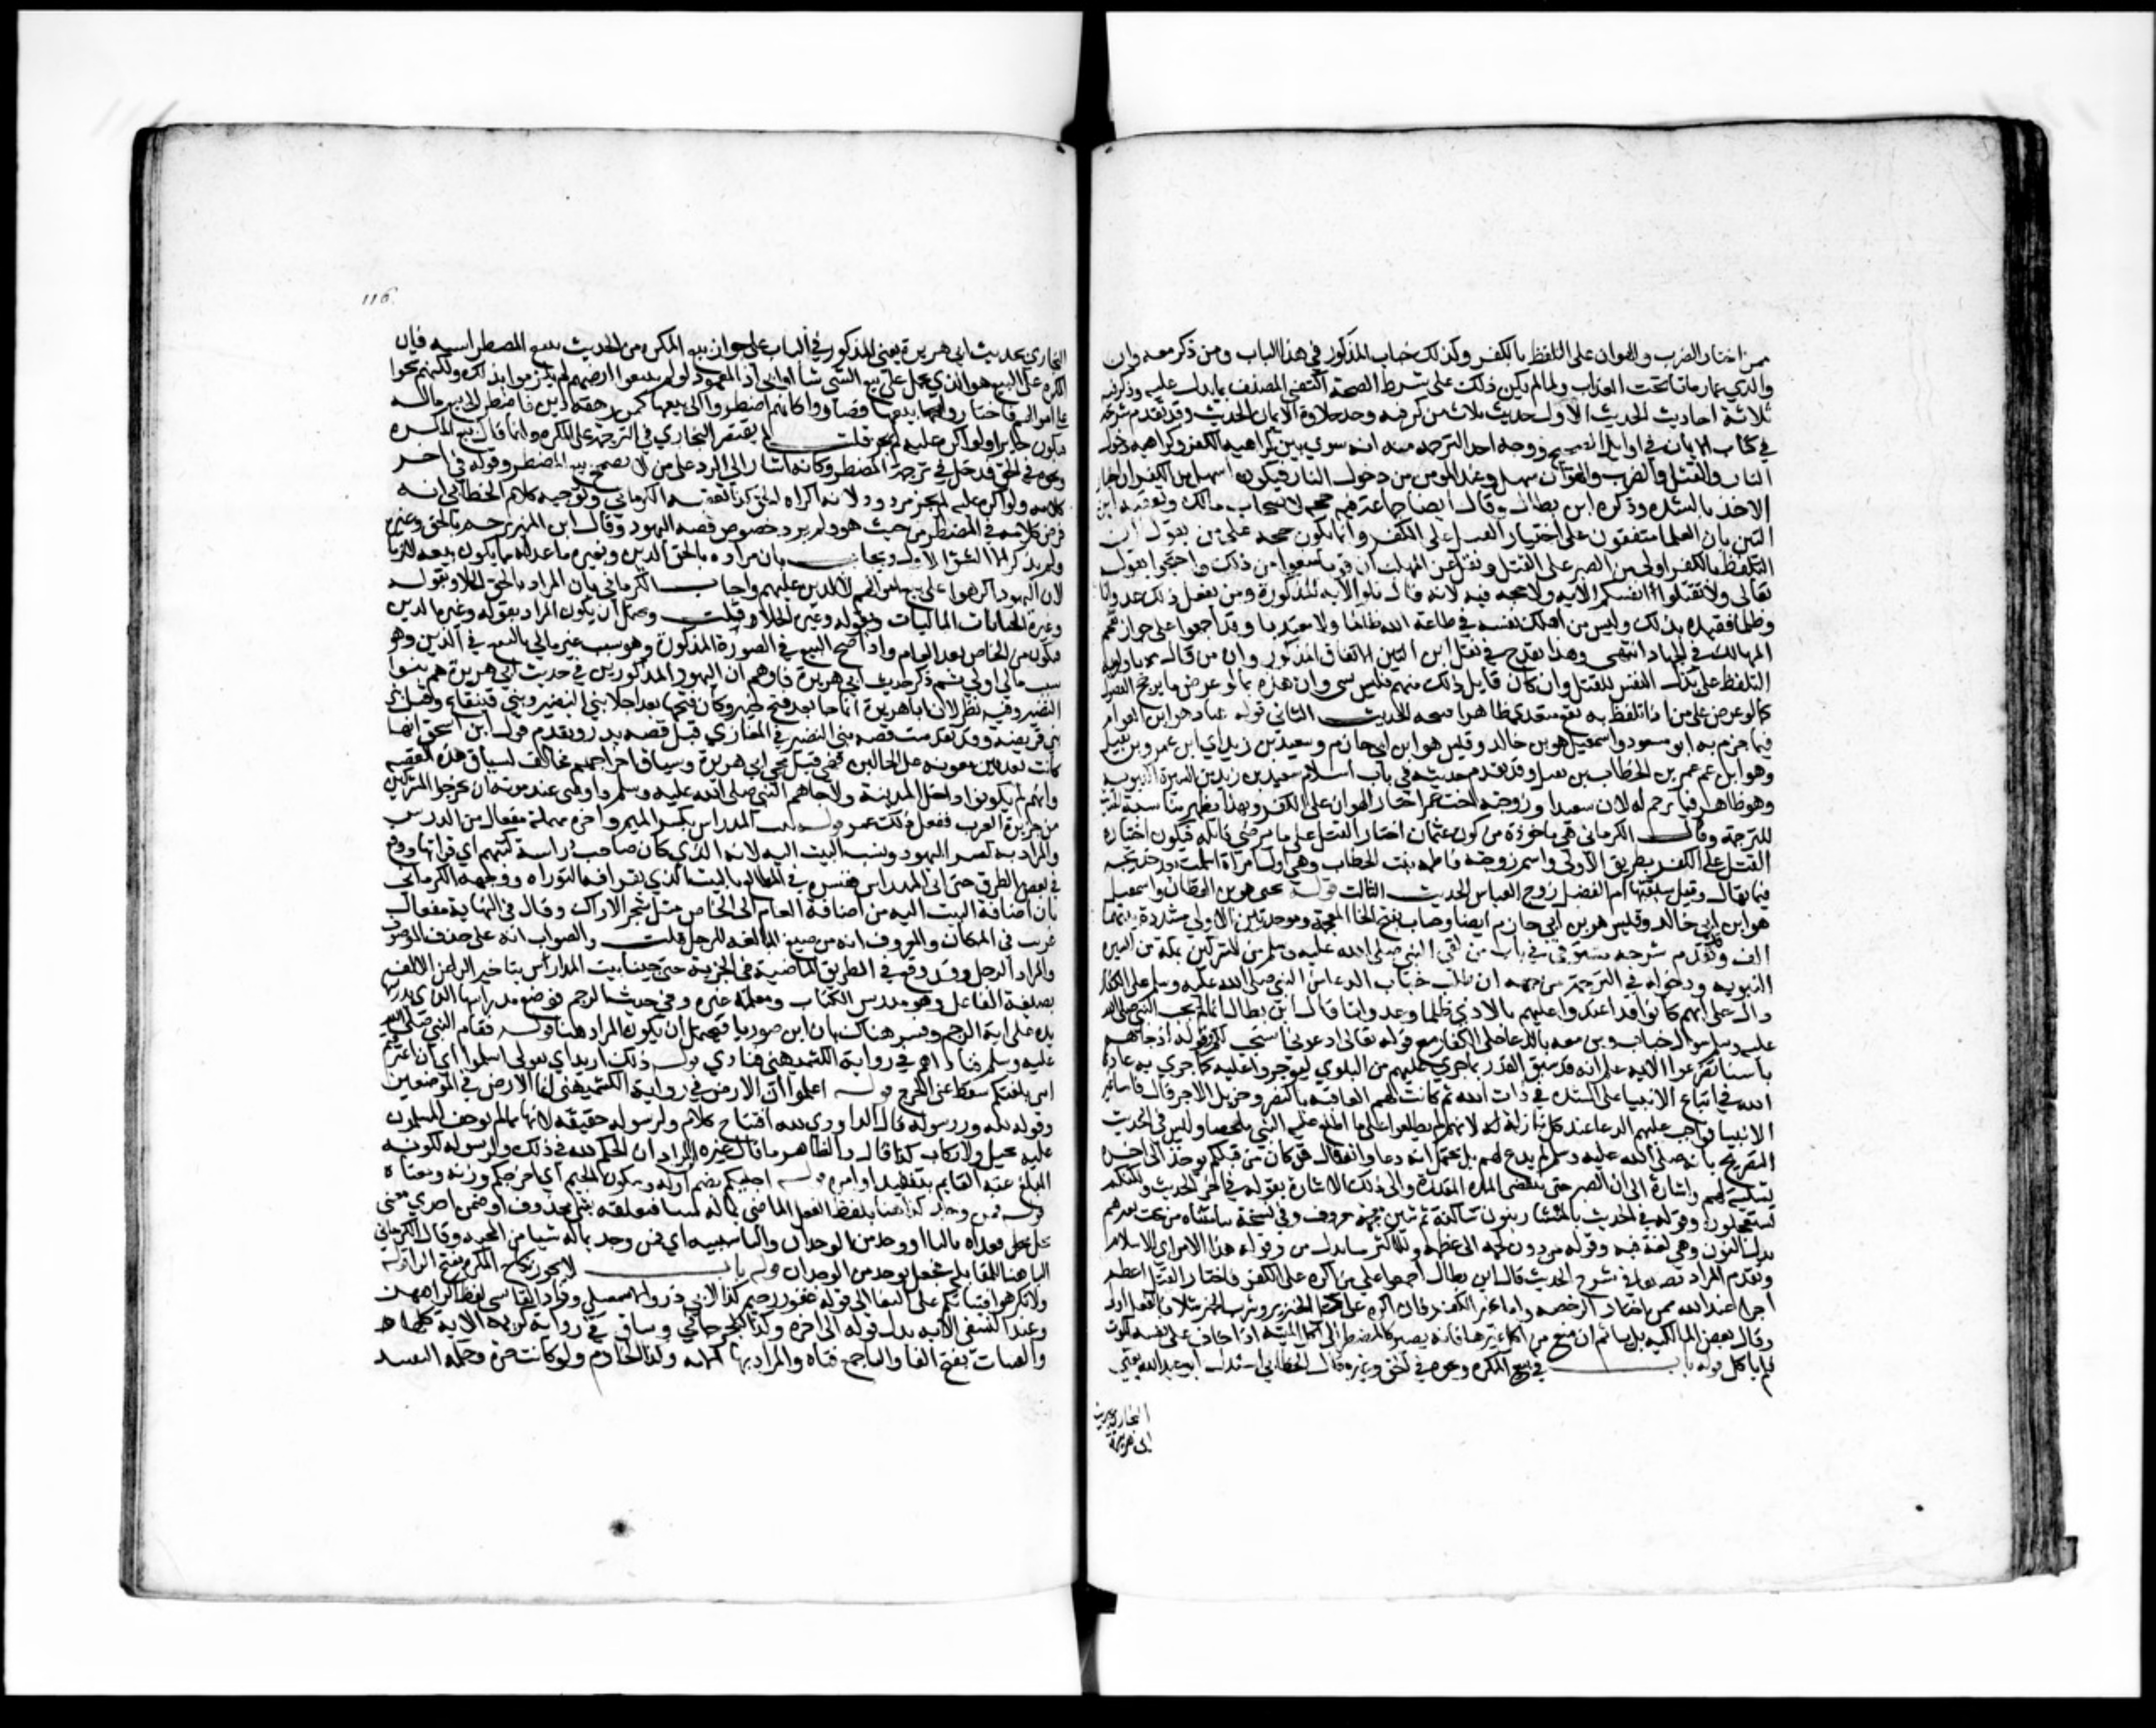 ممن اختار الضرب والهوان على التلفظ بالكفر وكذلك خباب المذكور في هذا الباب ومن ذكر معه وان
والدي عمار ماتا تحت العذاب ولما لم يكن ذلك على شرط الصحة اكتفى المصنف بما يدل عليه وذكر فيه
ثلاثة احاديث الحديث الاول حديث ثلاث من كن فيه وجد حلاوة الايمان الحديث وقد تقدم شرحه
في كتاب الايمان في اوايل الصحيح ووجه اخذ الترجمة منه انه سوي بين كراهية الكفر وكراهية دخول
النار والقتل والضرب والهوان اسهل عند المومن من دخول النار فيكون اسهل من الكفر ان اختار
الاخذ بالشدة وذكره ابن بطال وقال ايضا فيه حجة لاصحاب مالك وتعقبه ابن
التين بان العلما متفقون على اختيار القتل على الكفر وانما يكون حجة على من يقول ان
التلفظ بالكفر اولى من الصبر على القتل ونقل عن المهلب ان قوما منعوا من ذلك واحتجوا بقوله
تعالى ولا تقتلوا انفسكم الاية ولا حجة فيه لانه قال تلو الاية المذكورة ومن يفعل ذلك عدوانا
وظلما فقيده بذلك وليس من اهلك نفسه في طاعة الله ظالما ولا معتديا وقد اجمعوا على جواز تقحم
المهالك في الجهاد انتهى وهذا يقدح في نقل ابن التين الاتفاق المذكور وان من قال باولوية
التلفظ على بذل النفس للقتل وان كان قايل ذلك يعمم فليس بشي وان هذه بما لو عرض ما يرجح المفضول
كما لو عرض على من اذا تلفظ به نفع متعد ظاهرا فيتجه الحديث الثاني قوله عباد هو ابن العوام
فيما جزم به ابو مسعود واسمعيل هو ابن خالد وقيس هو ابن ابي حازم وسعيد بن زيد اي ابن عمرو بن نفيل
وهو ابن عم عمر بن الخطاب بن نفيل وقد تقدم حديثه في باب اسلام سعيد بن زيد من السيرة النبوية
وهو ظاهر فيما ترجم له لان سعيدا وزوجته اخت عمر اختارا الهوان على الكفر وبهذا تظهر مناسبة الحديث
للترجمة وقال الكرماني هي ماخوذة من كون عثمان اختار القتل على ما يرضي قاتله فيكون اختياره
القتل على الكفر بطريق الاولى واسم زوجته فاطمة بنت الخطاب وهي اول امراة اسلمت بعد خديجة
فيما يقال وقيل سبقتها ام الفضل زوج العباس الحديث الثالث قوله يحيى هو ابن القطان واسمعيل
هو ابن ابي خالد وقيس هو ابن ابي حازم ايضا وخباب بفتح الخا المعجمة وموحدتين الاولى مشددة بينهما
الف وتقدم شرحه مستوفى في باب من لقي النبي صلى الله عليه وسلم من المشركين بمكة من السيرة
النبوية ودخوله في الترجمة من جهة ان طلب خباب الدعا من النبي صلى الله عليه وسلم على الكفار
دال على انهم كانوا قد اعتدوا عليهم بالاذي ظلما وعدوانا قال ابن بطال انما لم يجب النبي صلى الله
عليه وسلم سوال خباب ومن معه بالدعا على الكفار مع قوله تعالى ادعوني استجب لكم وقوله اذ جاءهم
باسنا تضرعوا الاية علم انه قد سبق القدر بما جرى عليهم من البلوى ليوجروا عليه كما جرى به عادة
الله في اتباع الانبيا على الشدة في ذات الله ثم كانت لهم العاقبة بالنصر وجزيل الاجر قال فاما غير
الانبيا فواجب عليهم الدعا عند كل نازلة لانهم لم يطلعوا على ما اطلع عليه النبي ملخصا وليس في الحديث
التصريح بانه صلى الله عليه وسلم لم يدع لهم بل يحتمل انه دعا وانما قال قد كان من قبلكم يوخذ الى اخره
تسلية لهم واشارة الى ان الصبر حتى تنقضي المدة المقدرة والى ذلك الاشارة بقوله في اخر الحديث ولكنكم
تستعجلون وقوله في الحديث بالمنشار بنون ساكنة ثم شين معجمة معروف وفي نسخة بيا مثناة من تحت بغير همز
بدل النون وهي لغة فيه وقوله من دون لحمه الى عظمه وللاكثر ما بدل من وقوله هذا الامر اي الاسلام
وتقدم المراد بصنعا في شرح الحديث قال ابن بطال اجمعوا على من اكره على الكفر فاختار القتل اعظم
اجرا عند الله ممن اختار الرخصة واما غير الكفر فان اكره على اكل الخنزير وشرب الخمر مثلا فالفعل اولى
وقال بعض المالكية بل ياثم ان منع من اكل غيرها فانه يصير كالمضطر الى اكل الميتة اذا خاف على نفسه الموت
فلم ياكل قوله باب في بيع المكره ونحوه في الحق وغيره قال الخطابي استدل ابو عبد الله يعني
البخاري بحديث
ابي هريرة
116
البخاري بحديث ابي هريرة يعني المذكور في الباب على جواز بيع المكره من الحديث ببيع المضطر اشبه فان
المكره على البيع هو الذي يحمل على بيع الشي شا او ابى اذ اليهود لو لم يبيعوا ارضهم لم يلزموا بذلك ولكنهم شحوا
على اموالهم فاختاروا بيعها فصاروا كانهم اضطروا الى بيعها كمن رهقه دين فاضطر الى بيع ماله
فيكون جايزا ولو اكره عليه لم يجز قلت لم يقتصر البخاري في الترجمة على المكره وانما قال بيع المكره
ونحوه في الحق فدخل في ترجمته المضطر وكانه اشار الى الرد على من لا يصحح بيع المضطر وقوله في اخر
كلامه ولو اكره عليه لم يجز مردود لانه اكراه بحق كذا تعقبه الكرماني وتوجيه كلام الخطابي انه
فرض كلامه في المضطر من حيث هو ولم يرد خصوص قصة اليهود وقال ابن المنير ترجم بالحق وغيره
ولم يذكر الا الشق الاول ويجاب بان مراده بالحق الدين وبغيره ما عداه مما يكون بيعه لازما
لان اليهود اكرهوا على بيع اموالهم لا لدين عليهم واجاب الكرماني بان المراد بالحق الجلا وبقوله
وغيره الجنايات والماليات وبقوله وغيره الجلا وقلت ويحتمل ان يكون المراد بقوله وغيره الدين
فيكون من الخاص بعد العام واذا صح البيع في الصورة المذكورة وهو سبب غير مالي فالبيع في الدين وهو
سبب مالي اولى ثم ذكر حديث ابي هريرة فاوهم ان اليهود المذكورين في حديث ابي هريرة هم بنوا
النضير وفيه نظر لان ابا هريرة انما جا بعد فتح خيبر وكان فتحها بعد اجلا بني النضير وبني قينقاع وقتل
بني قريظة وقد تقدمت قصة بني النضير في المغازي قبل قصة بدر وتقدم قول ابن اسحق انها
كانت بعد بير معونة وعلى الحالين فهي قبل مجي ابي هريرة وسياق اخراجهم مخالف لسياق هذه القصة
وانهم لم يكونوا داخل المدينة ولا جاهم النبي صلى الله عليه وسلم واوصى عند موته ان يخرجوا المشركين
من جزيرة العرب ففعل ذلك عمر قوله بيت المدراس بكسر الميم واخره مهملة مفعال من الدرس
والمراد به كبير اليهود ونسب البيت اليه لانه الذي كان صاحب دراسة كتبهم اي قراتها ووقع
في بعض الطرق حتى اتى المدراس ففسره في المطالع بالبيت الذي تقرا فيه التوراة ووجهه الكرماني
بان اضافة البيت اليه من اضافة العام الى الخاص مثل شجر الاراك وقال في النهاية مفعال
غريب في المكان والمعروف انه من صيغ المبالغة للرجل قلت والصواب انه على حذف الموصوف
والمراد الرجل وقد وقع في الطريق الماضية في الجزية حتى جينا بيت المدارس بتاخير الرا عن الالف
بصيغة الفاعل وهو مدرس الكتاب ومعلمه غيره وفي حديث الرجم فوضع مدراسها الذي يدرسها
يده على اية الرجم وفسر هناك بان ابن صوريا فيحتمل ان يكون المراد هنا قوله فقام النبي صلى الله
عليه وسلم فناداهم في رواية الكشميهني فنادى قوله ذلك اريد اي بقولي اسلموا اي ان اعترفتم
انني بلغتكم سقط عني الحرج قوله اعلموا ان الارض في رواية الكشميهني انما الارض في الموضعين
وقوله لله ورسوله قال الداودي لله افتتاح كلام ولرسوله حقيقة لانها مما لم يوجف المسلمون
عليه بخيل ولا ركاب كذا قال والظاهر ما قال غيره المراد ان الحكم لله في ذلك ولرسوله لكونه
المبلغ عنه القايم بتنفيذ اوامره قوله اجليكم بضم اوله وسكون الجيم اي اخرجكم وزنه ومعناه
قوله فمن وجد كذا هنا بلفظ الفعل الماضي بماله شيا فيتعلقه بشي محذوف او ضمن اخرى معنى
نحل فعداه بالبا او وجد من الوجدان والبا سببية اي فمن وجد بماله شيا من المحبة وقال الكرماني
البا هنا للمقابلة فجعل وجد من الوجدان قوله باب لا يجوز نكاح المكره بفتح الرا قوله
ولا تكرهوا فتياتكم على البغا الى قوله غفور رحيم كذا لابي ذر والاسمعيلي وزاد القابسي لفظ اكراههن
وعند النسفي الاية بدل قوله الى اخره وكذا للجرجاني وساق في رواية كريمة الاية كلها
والفتيات بفتح الفا والتا جمع فتاة والمراد بها الامة وكذا الخادم ولو كانت حرة وحكمة التقييد